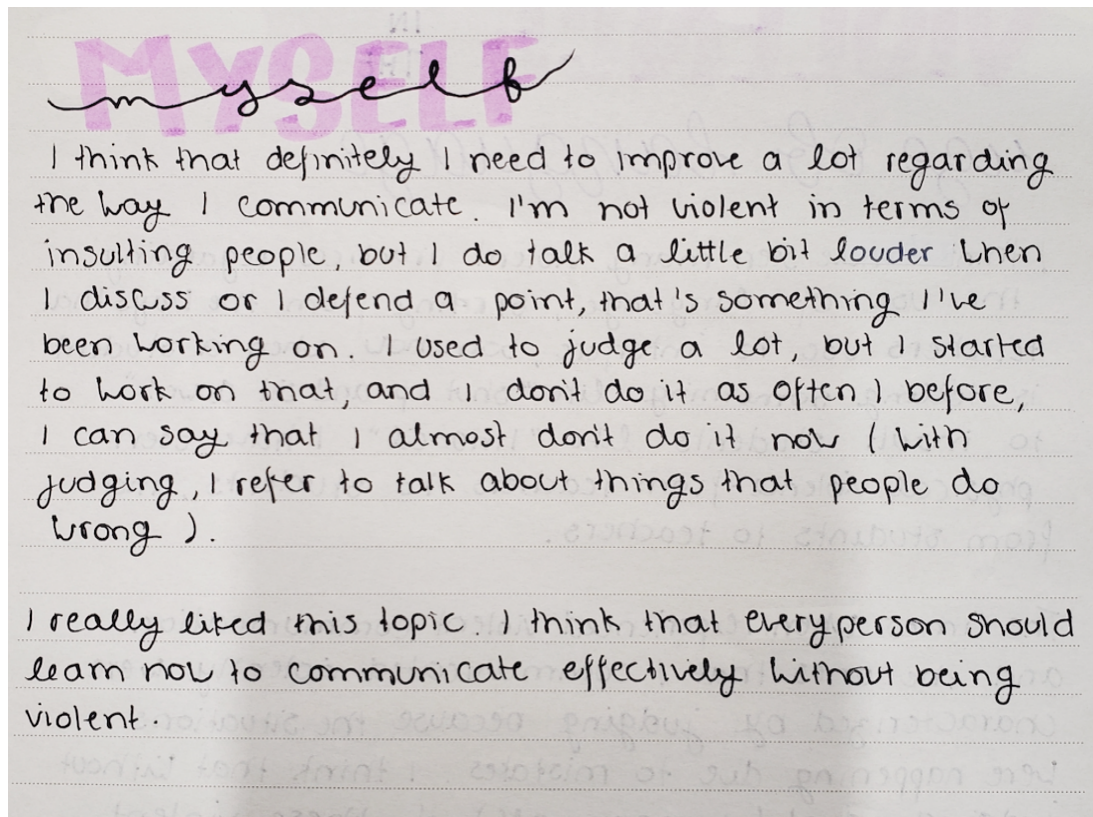 MYSELF
myself
I think that definitely I need to improve a lot regarding
the way I communicate. I'm not violent in terms of
insulting people, but I do talk a little bit louder when
I discuss or I defend a point, that's something I've
been working on. I used to judge a lot, but I started
to work on that, and I don't do it as often I before,
I can say that I almost don't do it now (with
judging, I refer to talk about things that people do
wrong).
I really liked this topic. I think that every person should
learn how to communicate effectively without being
violent.